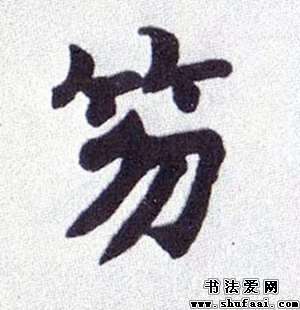 笏
书法爱网
www.shufaai.com